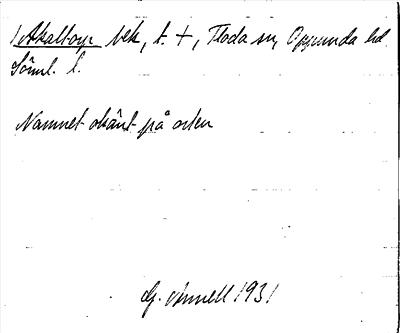 1 Akaltorp bek, t. +, Floda sn, Oppunda hd
Söml. l.
Namnet okänt på orten
G. Annell 1931